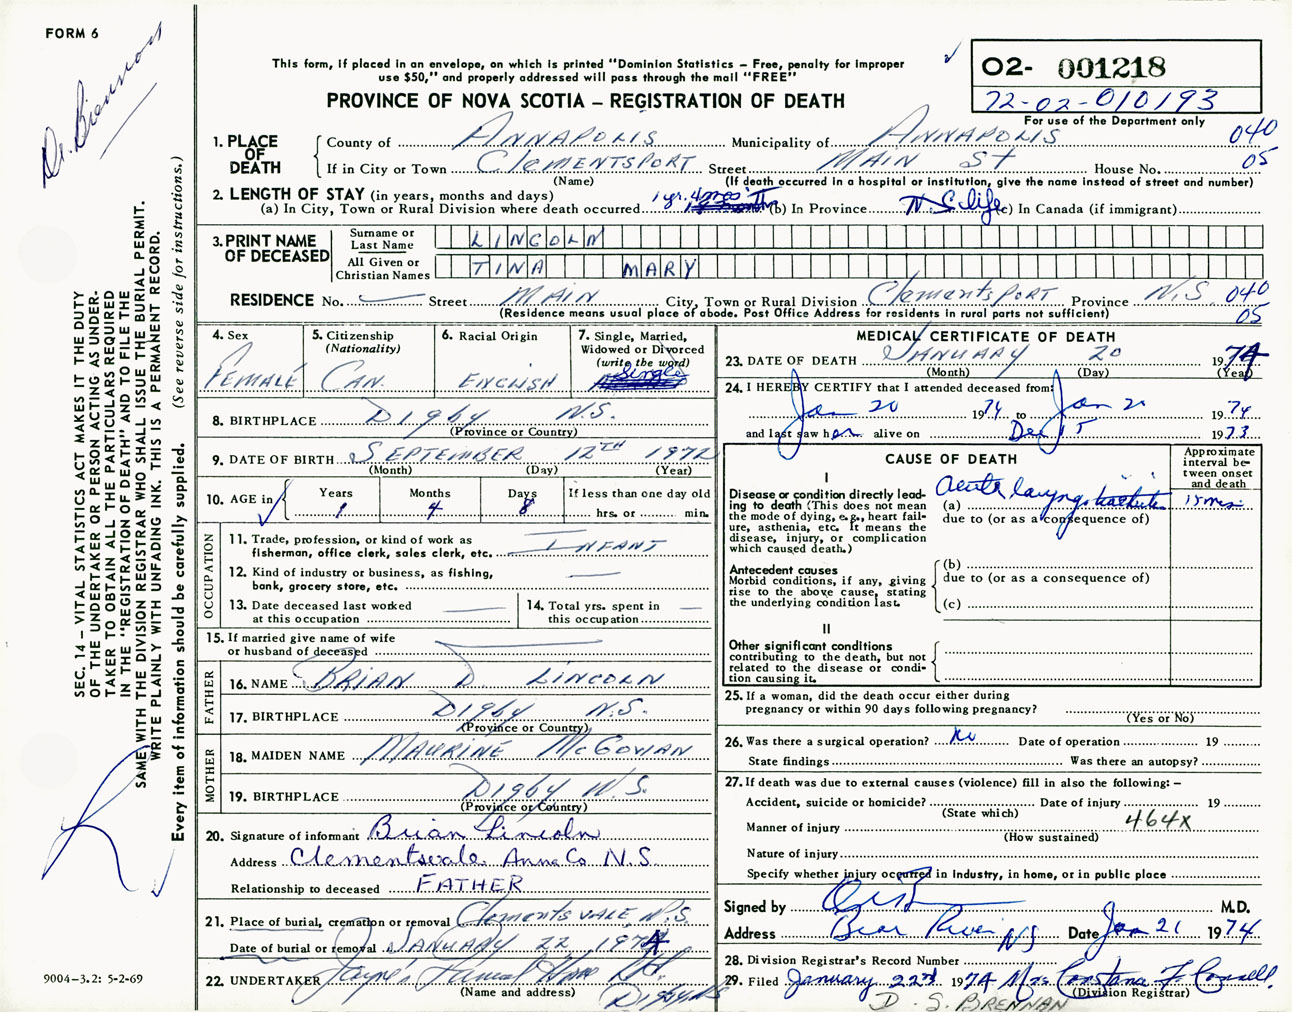 FORM 6
Dr. Brennan
This form, if placed in an envelope, on which is printed "Dominion Statistics – Free, penalty for improper
use $50," and properly addressed will pass through the mail "FREE"
PROVINCE OF NOVA SCOTIA – REGISTRATION OF DEATH
02- 001218
72-02-010193
For use of the Department only
1. PLACE OF DEATH
County of ANNAPOLIS Municipality of ANNAPOLIS 040
If in City or Town CLEMENTSPORT Street MAIN St House No. 05
(Name) (If death occurred in a hospital or institution, give the name instead of street and number)
2. LENGTH OF STAY (in years, months and days)
(a) In City, Town or Rural Division where death occurred 1 yr. 4 mos (b) In Province N.S. life (c) In Canada (if immigrant)
3. PRINT NAME OF DECEASED
Surname or Last Name LINCOLN
All Given or Christian Names TINA MARY
RESIDENCE No. Street MAIN City, Town or Rural Division CLEMENTSPORT Province N.S. 040
(Residence means usual place of abode. Post Office Address for residents in rural parts not sufficient) 05
4. Sex
FEMALE
5. Citizenship
(Nationality)
CAN.
6. Racial Origin
ENGLISH
7. Single, Married,
Widowed or Divorced
(write the word)
Single
8. BIRTHPLACE DIGBY N.S.
(Province or Country)
9. DATE OF BIRTH SEPTEMBER 12TH 1972
(Month) (Day) (Year)
10. AGE in Years 1 Months 4 Days 8 If less than one day old
hrs. or min.
OCCUPATION
11. Trade, profession, or kind of work as
fisherman, office clerk, sales clerk, etc. INFANT
12. Kind of industry or business, as fishing,
bank, grocery store, etc. —
13. Date deceased last worked
at this occupation —
14. Total yrs. spent in
this occupation —
15. If married give name of wife
or husband of deceased
FATHER
16. NAME BRIAN D. LINCOLN
17. BIRTHPLACE DIGBY N.S.
(Province or Country)
MOTHER
18. MAIDEN NAME MAURINE McGOWAN
19. BIRTHPLACE DIGBY N.S.
(Province or Country)
20. Signature of informant Brian Lincoln
Address Clementsvale Anna Co N.S.
Relationship to deceased FATHER
21. Place of burial, cremation or removal CLEMENTSVALE N.S.
Date of burial or removal JANUARY 22 1974
22. UNDERTAKER Jayne's Funeral Home Ltd.
(Name and address) DIGBY NS
MEDICAL CERTIFICATE OF DEATH
23. DATE OF DEATH JANUARY 20 1974
(Month) (Day) (Year)
24. I HEREBY CERTIFY that I attended deceased from
Jan 20 1974 to Jan 1974
and last saw her alive on Dec 15 1973
CAUSE OF DEATH
Approximate
interval be-
tween onset
and death
I
Disease or condition directly lead-
ing to death (This does not mean
the mode of dying, e.g., heart fail-
ure, asthenia, etc. It means the
disease, injury, or complication
which caused death.)
(a) Acute laryngo
due to (or as a consequence of)
Antecedent causes
Morbid conditions, if any, giving
rise to the above cause, stating
the underlying condition last.
(b)
due to (or as a consequence of)
(c)
II
Other significant conditions
contributing to the death, but not
related to the disease or condi-
tion causing it.
25. If a woman, did the death occur either during
pregnancy or within 90 days following pregnancy?
(Yes or No)
26. Was there a surgical operation? No Date of operation 19
State findings Was there an autopsy?
27. If death was due to external causes (violence) fill in also the following: –
Accident, suicide or homicide? Date of injury 19
(State which)
464X
Manner of injury
(How sustained)
Nature of injury
Specify whether injury occurred in Industry, in home, or in public place
Signed by M.D.
Address Bear River NS Date Jan 21 1974
28. Division Registrar's Record Number
29. Filed January 22nd 1974 Mrs Constance F Connell
(Division Registrar)
D. S. BRENNAN
SEC. 14 – VITAL STATISTICS ACT MAKES IT THE DUTY
OF THE UNDERTAKER OR PERSON ACTING AS UNDER-
TAKER TO OBTAIN ALL THE PARTICULARS REQUIRED
IN THE "REGISTRATION OF DEATH" AND TO FILE THE
SAME WITH THE DIVISION REGISTRAR WHO SHALL ISSUE THE BURIAL PERMIT.
WRITE PLAINLY WITH UNFADING INK. THIS IS A PERMANENT RECORD.
Every item of information should be carefully supplied. (See reverse side for instructions.)
9004-3.2: 5-2-69